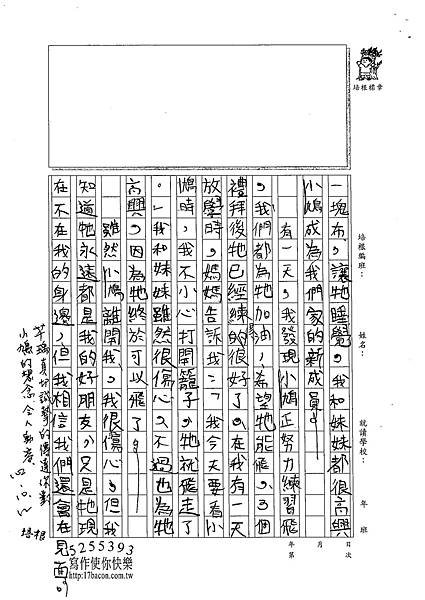 培根標章
培根編班：
姓名：
就讀學校：
年 班
年 月 日
第 次
一塊布，讓牠睡覺，我和妹妹都很高興
小鳩成為我們家的新成員。
有一天，我發現小鳩正努力練習飛
，我們都為牠加油，希望牠能飛。3個
禮拜後牠已經練的很好了。在我有一天
放學時，媽媽告訴我：「我今天要看小
鳩時，我不小心打開籠子，牠就飛走了
。」我和妹妹雖然很傷心，不過也為牠
高興，因為牠終於可以飛了。
雖然小鳩離開我，我很傷心，但我
知道牠永遠都是我的好朋友，又是牠現
在不在我的身邊，但我相信我們還會在
見面的
小鳩的想念令人動容
培根
5255393
寫作使你快樂
http://17bacon.com.tw/